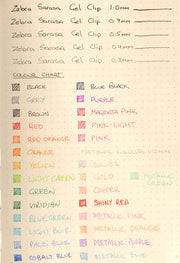 Zebra Sarasa Gel Clip 1.0mm
Zebra Sarasa Gel Clip 0.7mm
Zebra Sarasa Gel Clip 0.5mm
Zebra Sarasa Gel Clip 0.4mm
Zebra Sarasa Gel Clip 0.3mm
COLOUR CHART
BLACK BLUE BLACK
GREY PURPLE
BROWN MAGENTA PINK
RED PINK LIGHT
RED ORANGE PINK
ORANGE
YELLOW SILVER
LIGHT GREEN GOLD METALLIC GREEN
GREEN COPPER
VIRIDIAN SHINY RED
BLUE GREEN METALLIC PINK
LIGHT BLUE METALLIC ORANGE
PALE BLUE METALLIC PURPLE
COBALT BLUE METALLIC BLUE